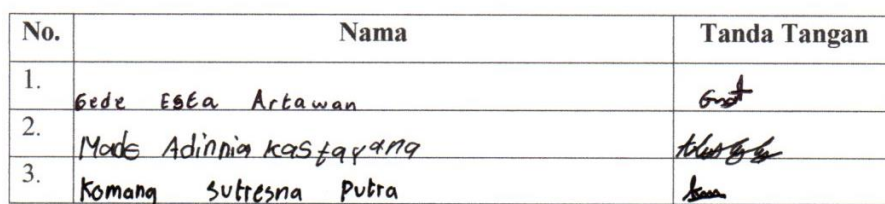 No. Nama Tanda Tangan
1. Gede Esta Artawan
2. Made Adinnia Kastayana
3. Komang Sutresna Putra